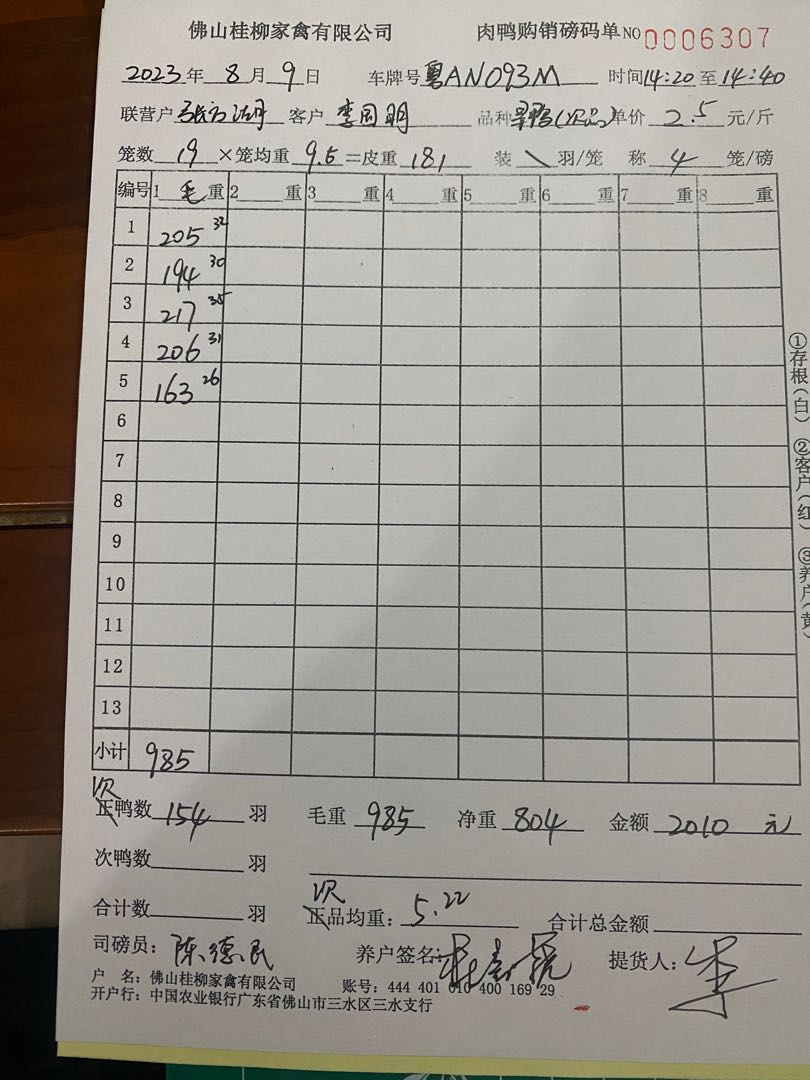 佛山桂柳家禽有限公司 肉鸭购销磅码单 NO 0006307
2023年 8月 9日 车牌号 粤AN093M 时间 14:20 至 14:40
联营户 客户 李国明 品种 (次品) 单价 2.5 元/斤
笼数 19 ×笼均重 9.5 =皮重 181 装 \ 羽/笼 称 4 笼/磅
编号 1 毛 重 2 重 3 重 4 重 5 重 6 重 7 重 8 重
1 205 32
2 194 30
3 217 35
4 206 31
5 163 26
6
7
8
9
10
11
12
13
小计 985
次
正鸭数 154 羽 毛重 985 净重 804 金额 2010 元
次鸭数 羽
次
合计数 羽 正品均重: 5.22 合计总金额
司磅员: 陈德民 养户签名: 提货人: 李
户 名: 佛山桂柳家禽有限公司 账号: 444 401 010 400 169 29
开户行: 中国农业银行广东省佛山市三水区三水支行
①存根(白) ②客户(红) ③养户(黄)